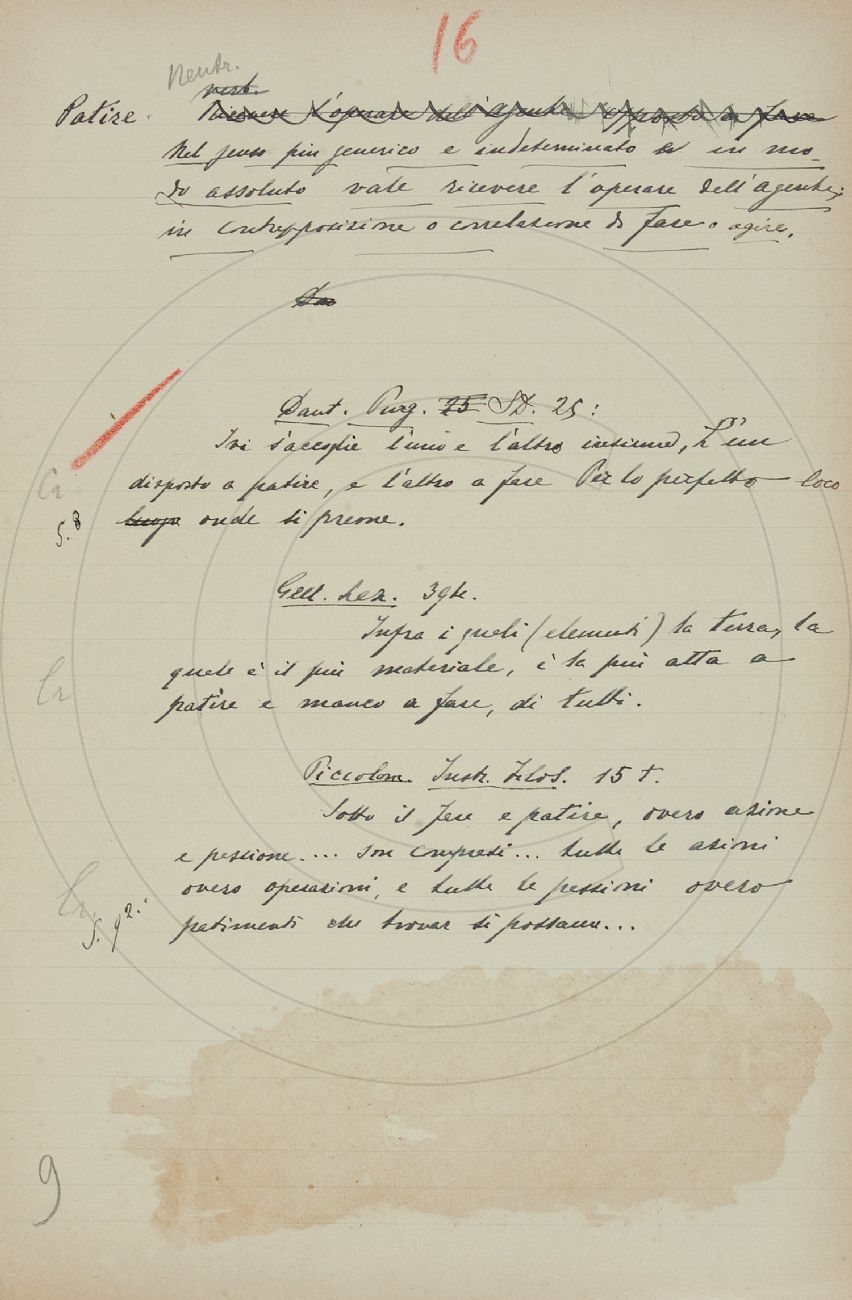 16
Neutr.
verb.
Patire. Ricevere l'operare dell'agente opposto a fare
Nel senso più generico e indeterminato e in mo-
do assoluto vale ricevere l'operare dell'agente;
in contrapposizione o correlazione di fare o agire.
Dan
Dant. Purg. 25 SD. 25:
Ivi s'accoglie l'uno e l'altro insieme, L'un
disposto a patire, e l'altro a fare Per lo perfetto loco
Cr
luogo onde si preme.
S. 8
Gell. Lez. 39t.
Infra i quali (elementi) la terra, la
quale è il più materiale, è la più atta a
Cr
patire e manco a fare, di tutti.
Piccolom. Instr. Filos. 15 t.
Sotto il fare e patire, overo azione
e passione.... son compresi... tutte le azioni
Cr.
overo operazioni, e tutte le passioni overo
S. 92.
patimenti che trovar si possano...
9